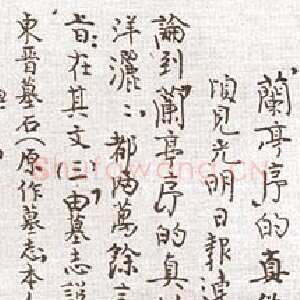 蘭亭序的真
頃見光明日報連
論到"蘭亭序的真
洋灑〻,都兩萬餘言
旨:在其文二"由墓志說
東晉墓石(原作墓志本